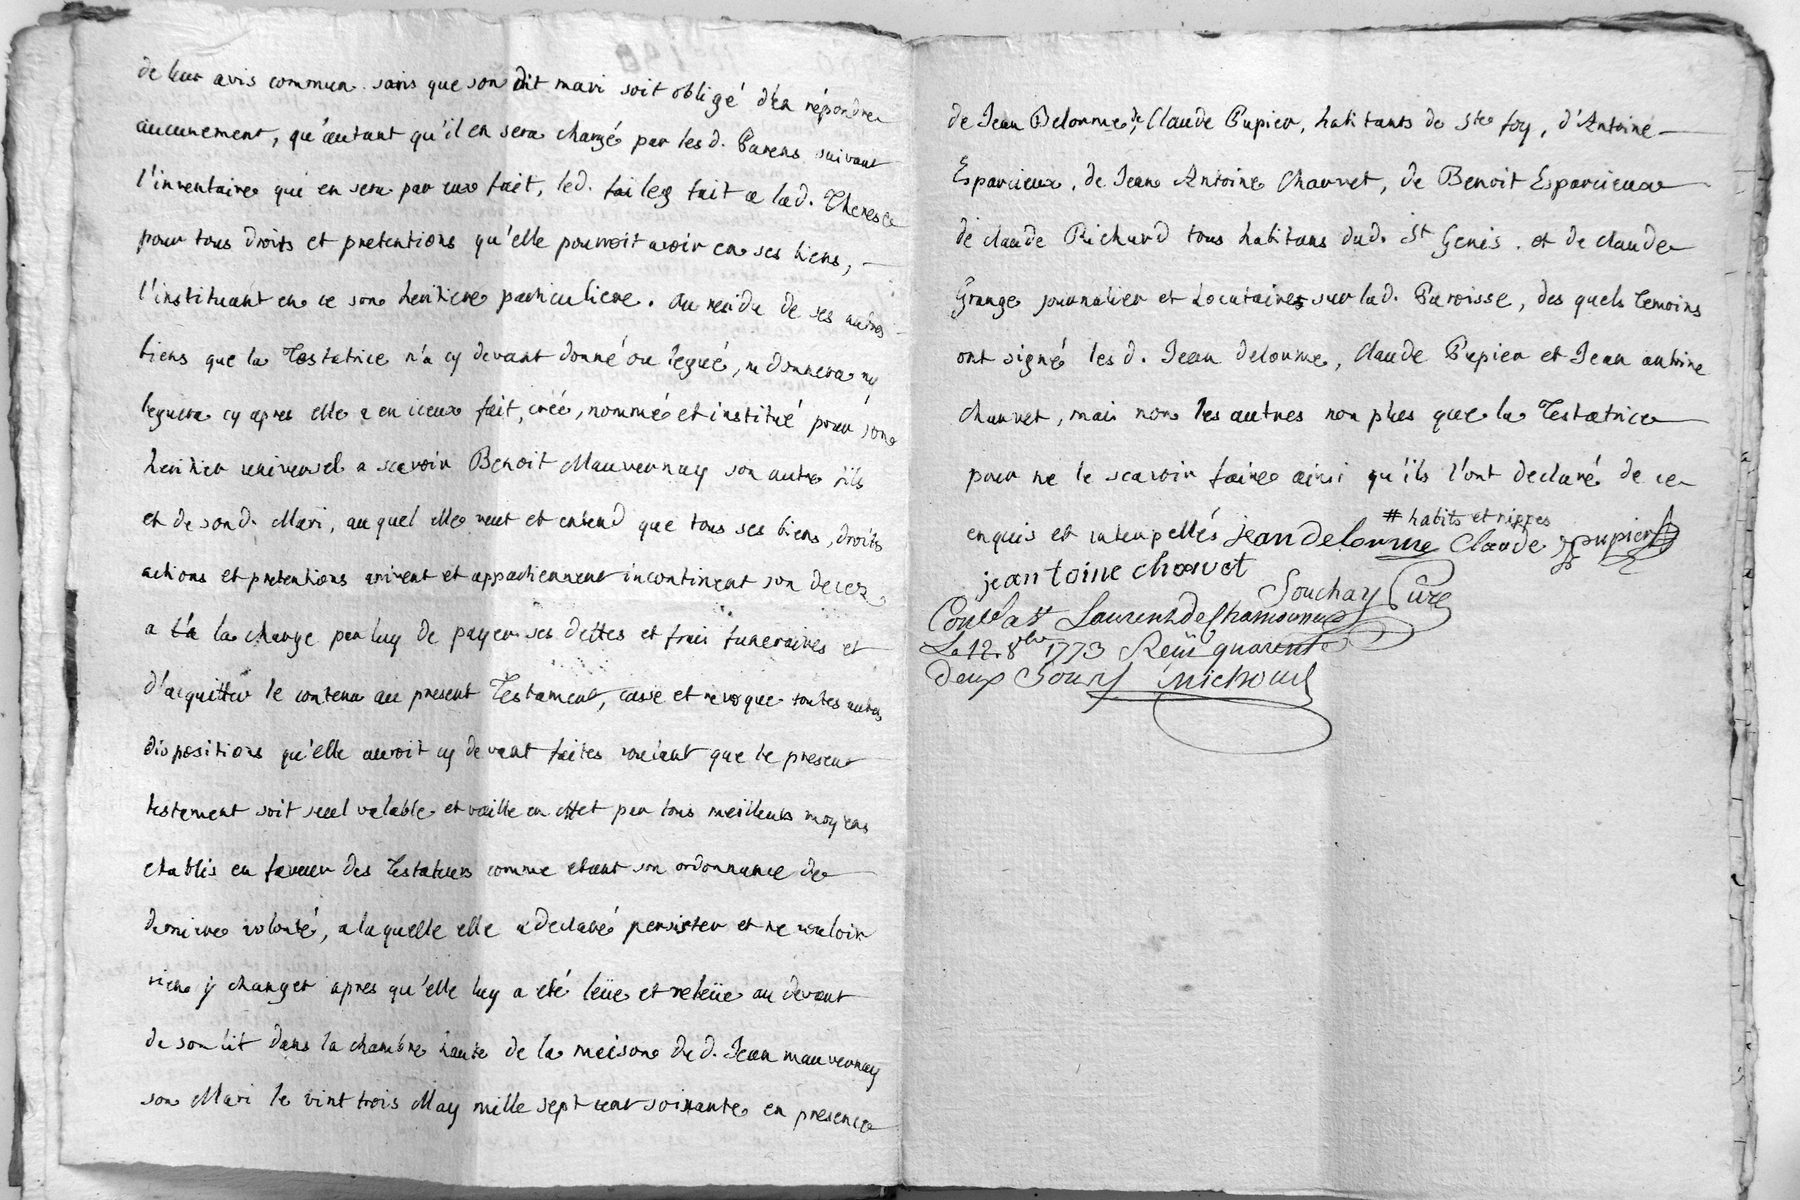 de leur avis commun sans que son dit mari soit obligé d'en répondre
aucunement, qu'autant qu'il en sera chargé par lesd. Parens suivant
l'inventaire qui en sera par eux fait, led. fai leg fait a lad. Therese
pour tous droits et pretentions qu'elle pourroit avoir en ses biens,
l'instituant en ce son heritiere particuliere. au residu de ses autres
biens que la Testatrice n'a cy devant donné ou legué, ne donnera ny
leguera cy apres elle a en iceux fait, créé, nommé et institué pour son
heritier universel a scavoir Benoit Mauvernay son autre fils
et de sond. Mari, auquel elle veut et entend que tous ses biens, droits
actions et pretentions arivent et appartiennent incontinent son decez
a la charge par luy de payer ses dettes et frais funeraires et
d'acquitter le contenu au present Testament, casse et revoque toutes autres
dispositions qu'elle auroit cy devant faites voulant que le present
testament soit seul valable et vaille en effet par tous meilleurs moyens
etablis en faveur des Testateurs comme etant son ordonnance de
derniere volonté, a laquelle elle a declaré persister et ne vouloir
rien y changer apres qu'elle luy a eté leüe et releüe au devant
de son lit dans la chambre haute de la maison dud. Jean mauvernay
son Mari le vint trois May mille sept cent soixante en presence
de Jean Delorme, Claude Pupier, habitants de Ste foy, d'Antoine
Esparcieux, de Jean Antoine Charvet, de Benoit Esparcieux
de claude Richard tous habitans dud. St Genis. et de claude
Grange journalier et Locataire sur lad. Paroisse, des quels temoins
ont signé lesd. Jean delorme, Claude Pupier et Jean antoine
charvet, mais non les autres non plus que la Testatrice
pour ne le scavoir faire ainsi qu'ils l'ont declaré de ce
# habits et nippes
enquis et interpellés jean delorme Claude pupier
jean toine charvet
Souchay Curé
Conlé a St Laurent de Chamousset
Le 12. 8bre 1773 Reçu quarente
deux sous michoud